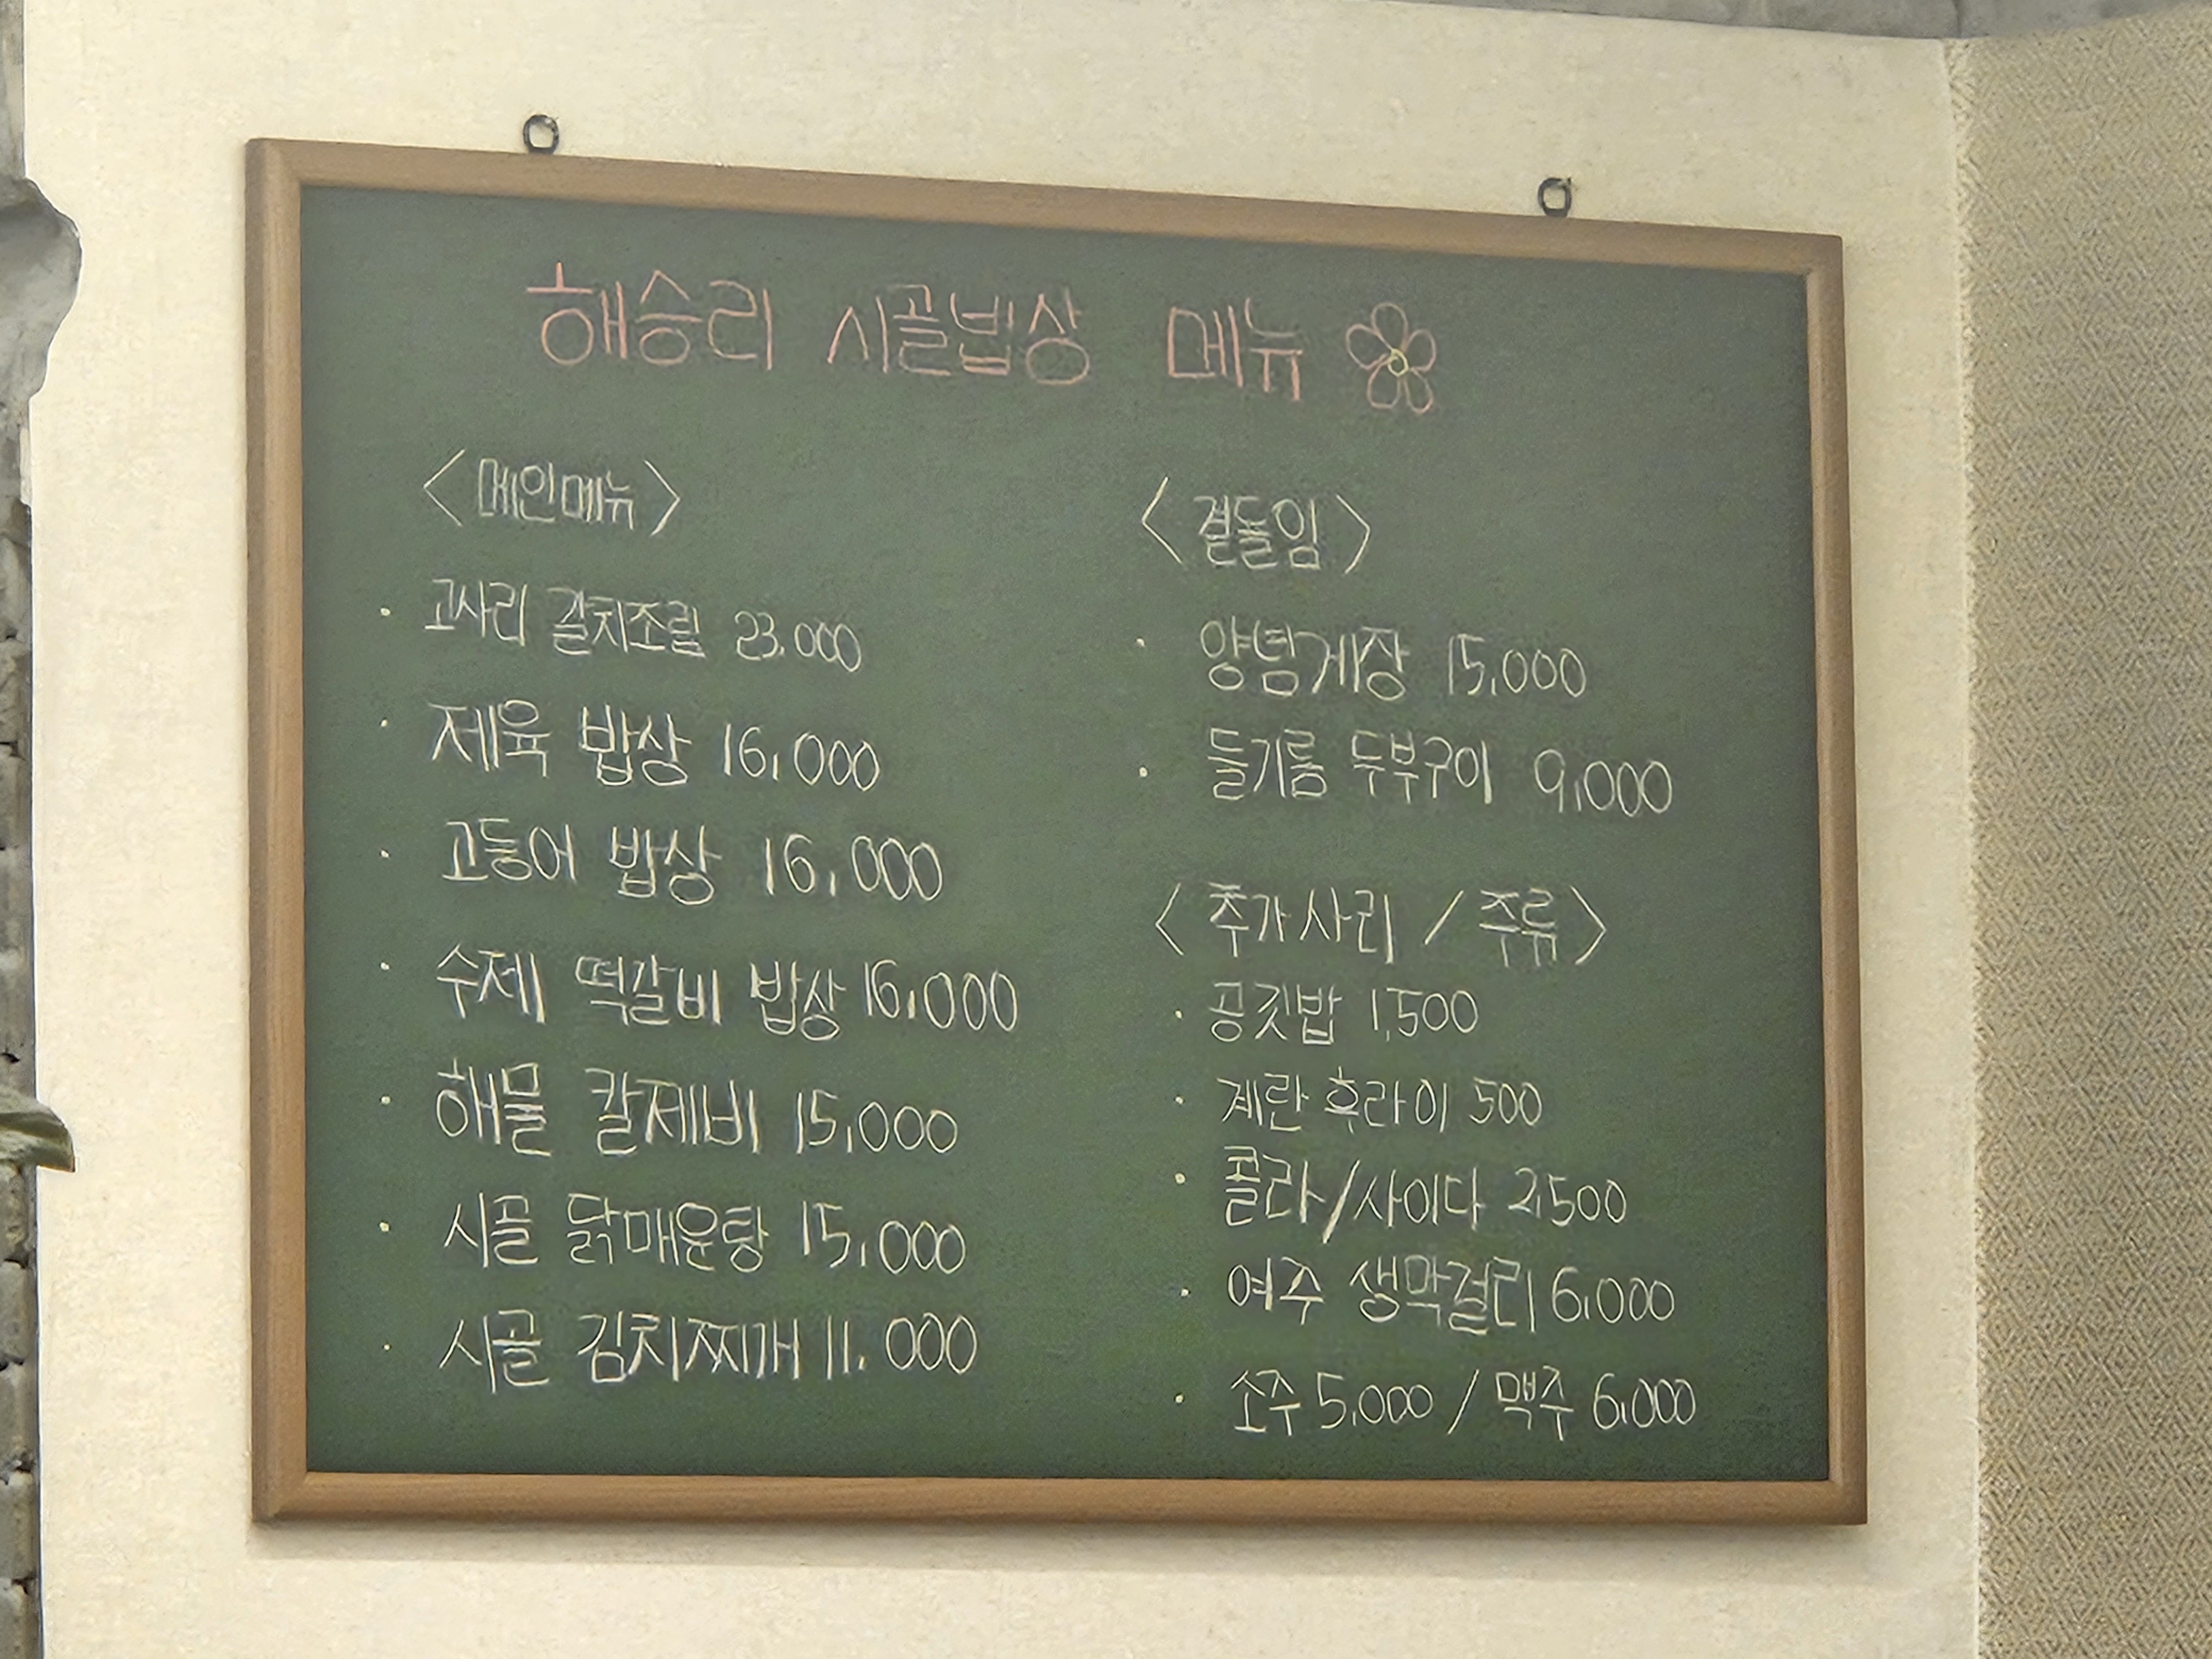 해승리 시골밥상 메뉴
<메인메뉴>
· 고사리 갈치조림 23.000
· 제육 밥상 16,000
· 고등어 밥상 16,000
· 수제 떡갈비 밥상 16,000
· 해물 칼제비 15,000
· 시골 닭매운탕 15,000
· 시골 김치찌개 11,000
<곁들임>
· 양념게장 15,000
· 들기름 두부구이 9,000
<추가사리 / 주류>
· 공깃밥 1,500
· 계란 후라이 500
· 콜라/사이다 2,500
· 여주 생막걸리 6,000
· 소주 5,000 / 맥주 6,000